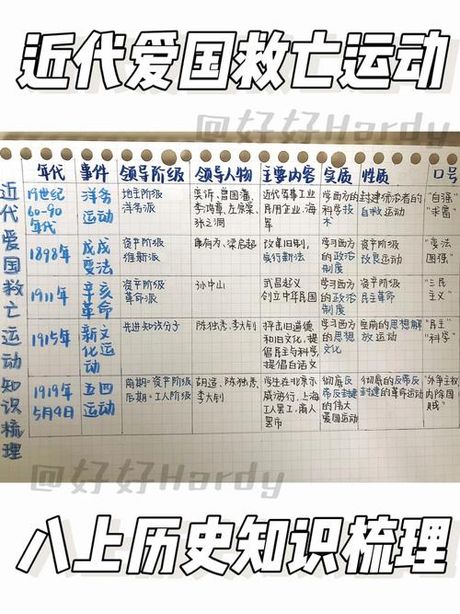 近代爱国救亡运动
@好好Hardy
近代爱国救亡运动知识梳理
年代 事件 领导阶级 领导人物 主要内容 实质 性质 口号
19世纪 洋务 地主阶级 奕䜣、曾国藩、 近代军事工业 学西方的 封建统治者的 "自强"
60-90 运动 洋务派 李鸿章、左宗棠、 民用企业、海 科学技术 自救运动 "求富"
年代 张之洞 军
1898年 戊戌 资产阶级 康有为、梁启超 改革旧制, 学习西方 资产阶级 "变法
变法 维新派 实行新法 的政治 改良运动 图强"
制度
1911年 辛亥 资产阶级 孙中山 武昌起义 学习西方 资产阶级 "三民
革命 革命派 创立中华民国 的政治 民主革命 主义"
制度
1915年 新文 先进知识分子 陈独秀、李大钊 抨击旧道德 学习西方 空前的思想解 "民主"
化运 和旧文化,提 的思想 放运动 "科学"
动 倡民主与科学, 文化
提倡白话文
1919年 五四 前期:资产阶级 胡适、陈独秀、 学生在北京示 彻底反 彻底的反帝反 "外争主权,
5月4日 运动 后期:工人阶级 李大钊 威游行,上海 帝反封建 封建的革命运动 内除国
工人罢工,商人 的伟大 贼"
罢市 爱国运动
@好好Hardy
八上历史知识梳理